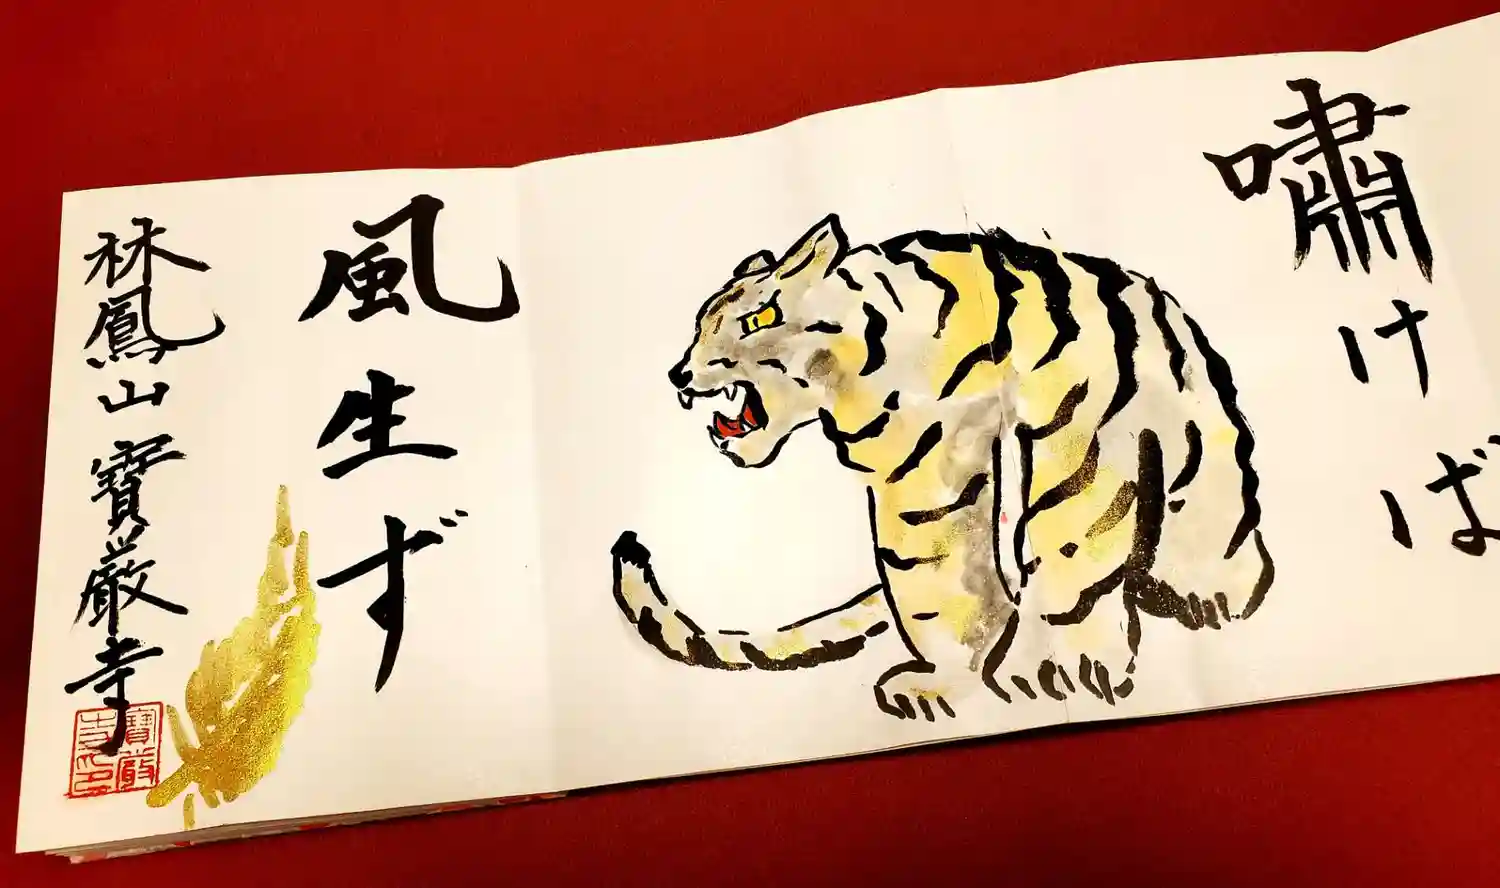 嘯けば
風生ず
林鳳山寶厳寺
寶厳
寺印